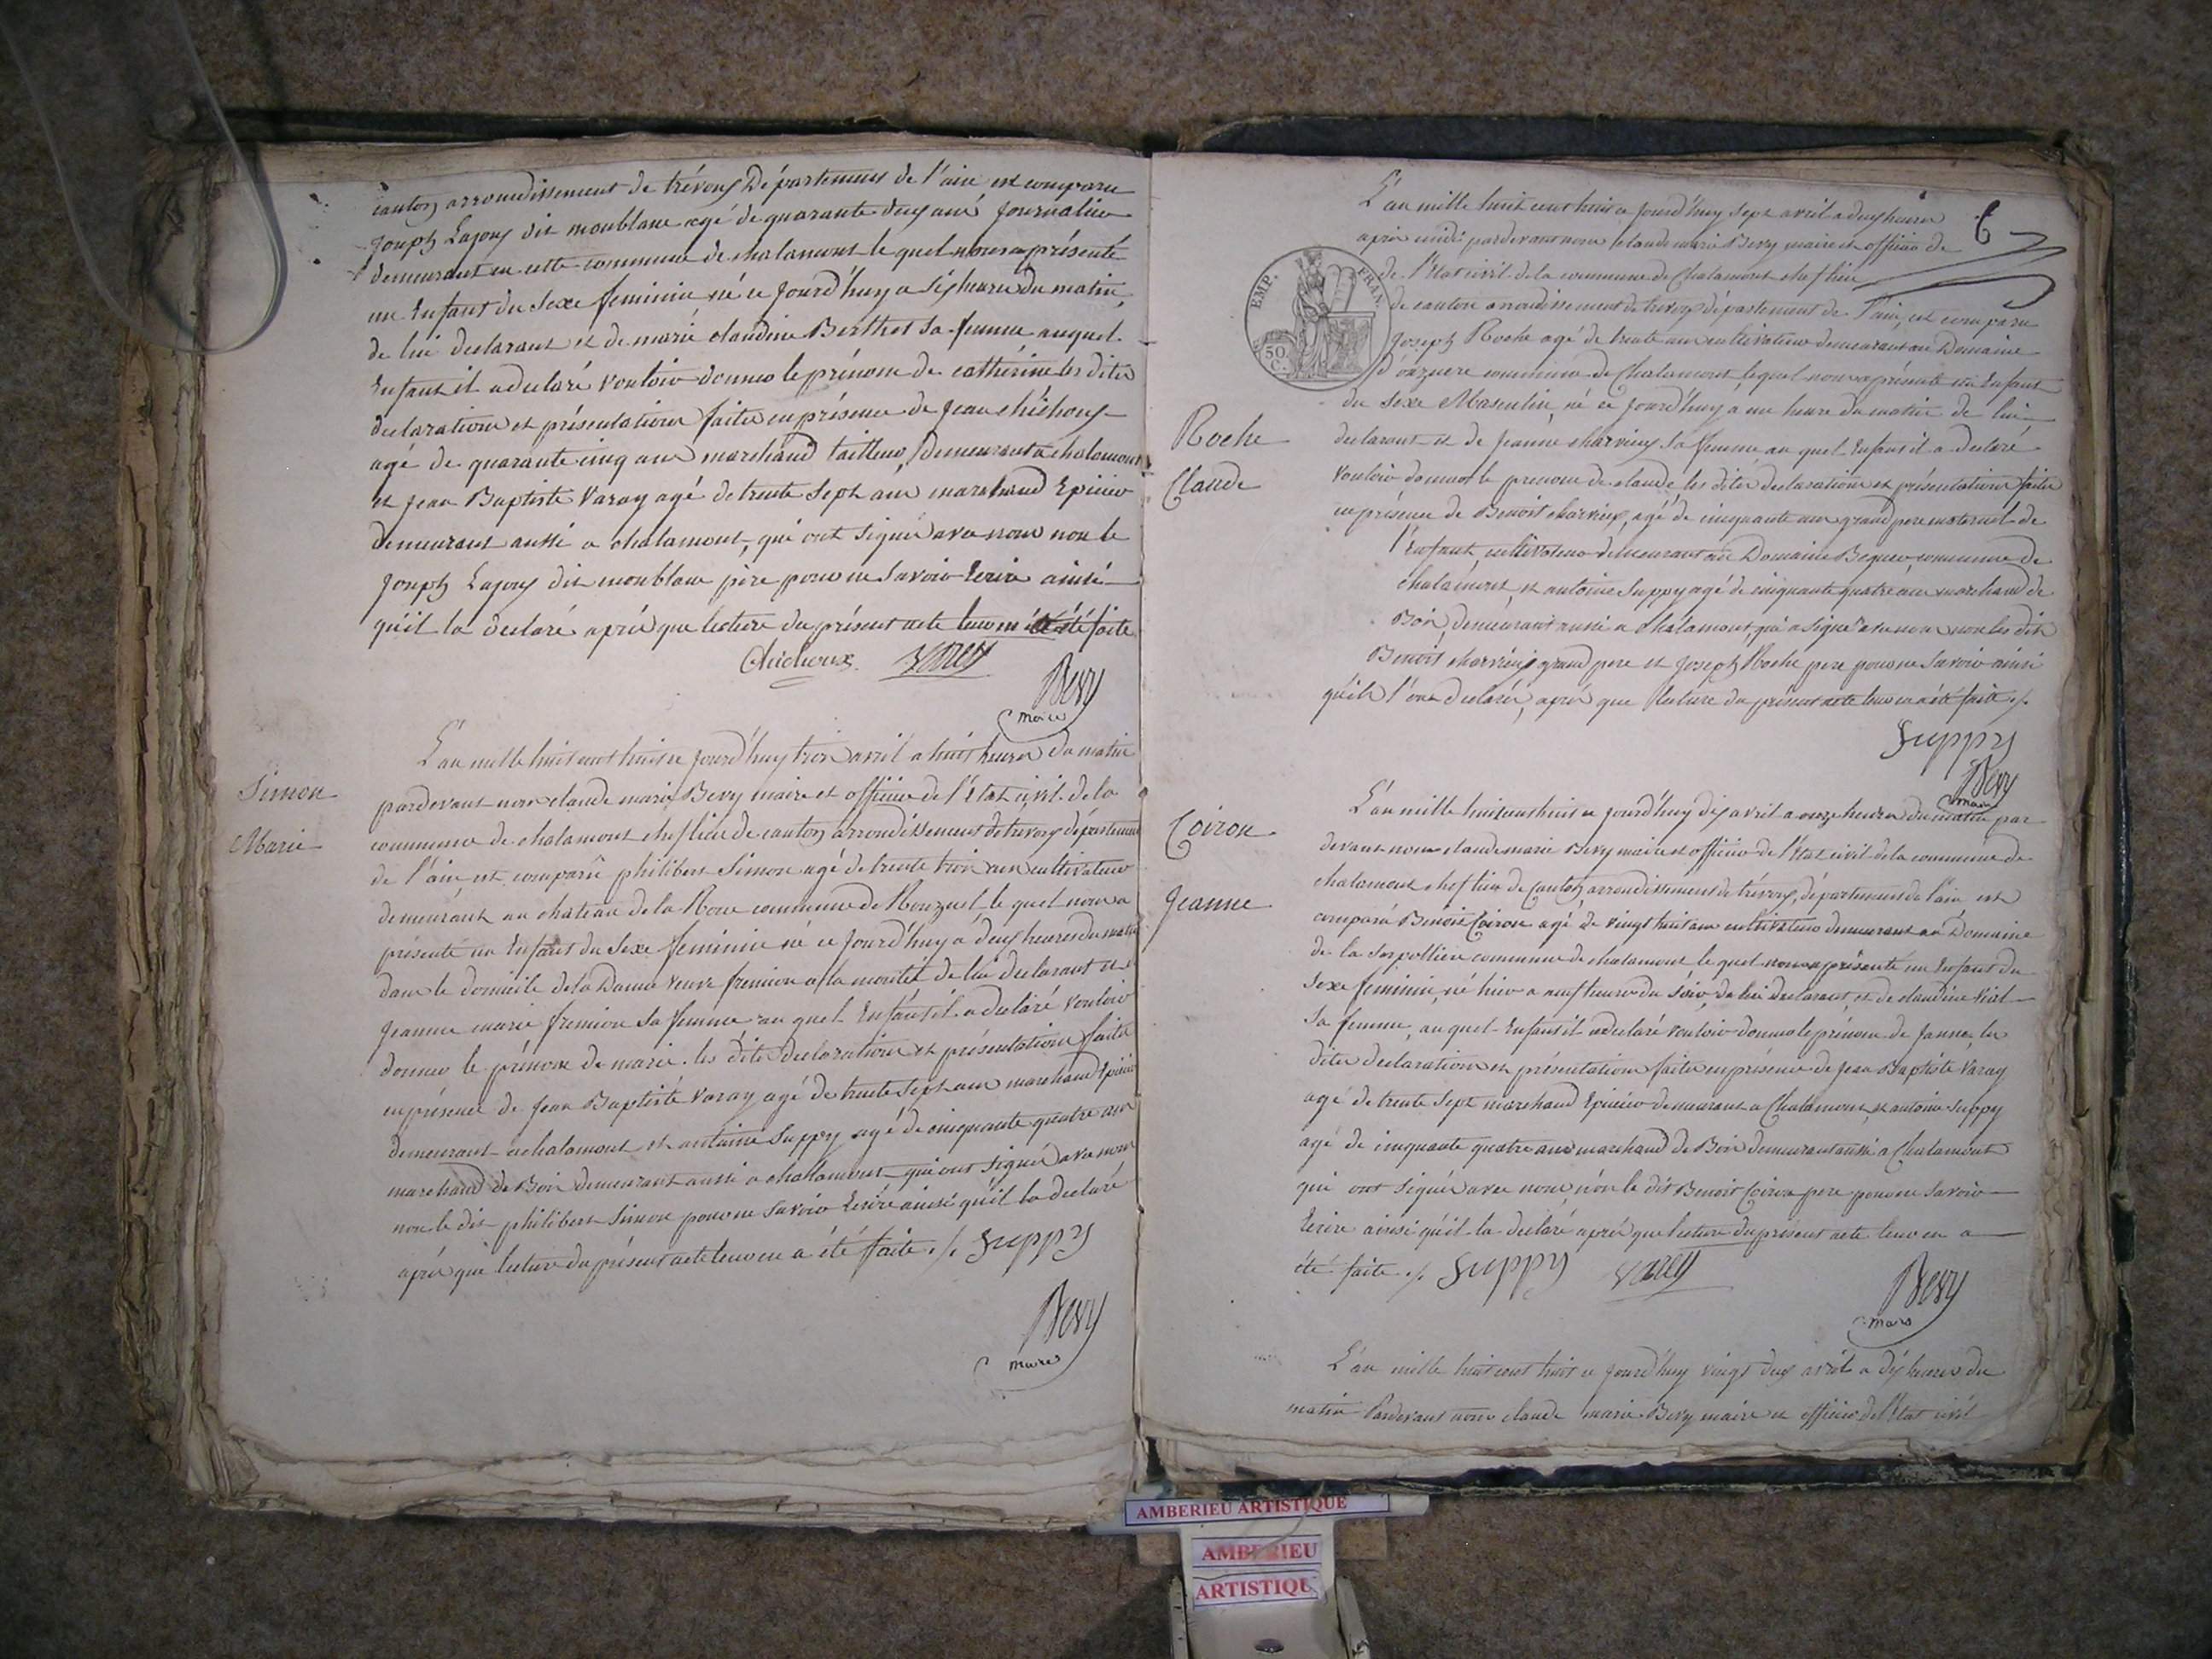 canton arrondissement de trévoux Département de l'ain est comparu
Joseph Lajoux dit monblanc agé de quarante deux ans Journalier
demeurant en cette commune de chalamont le quel nous a présenté
un Enfant du Sexe feminin né ce Jourd'huy a six heures du matin,
de lui declarant et de marie claudine Berthet Sa femme auquel
Enfant il a declaré vouloir donner le prénom de cathérine les dites
declaration et présentation faites en présence de Jean chichoux
agé de quarante cinq ans marchand tailleur, demeurant a chalamont
et Jean Baptiste Varay agé de trente Sept ans marchand Epicier
demeurant aussi a chalamont, qui ont signé avec nous non le
Joseph Lajoux dit monblanc père pour ne Savoir Ecrire ainsi
qu'il la declaré après que lecture du présent acte leur en a été faite
Chichoux Varey
Bevy
maire
Simon
Marie
L'an mille huit cent huit ce Jourd'huy trois avril a huit heures du matin
pardevant nous claude marie Bevy maire et officier de l'Etat civil de la
commune de chalamont chef lieu de canton arrondissement de trevoux département
de l'ain, est comparu philibert Simon agé de trente trois ans cultivateur
demeurant au chateau de la Roue commune de Ronzuel le quel nous a
présenté un Enfant du Sexe feminin né ce Jourd'huy a deux heures du matin
dans le domicile de la Dame veuve fremion a la montée de lui declarant et de
Jeanne marie fremion Sa femme au quel Enfant il a declaré vouloir
donner le prénom de marie les dites declaration et présentation faites
en présence de Jean Baptiste Varay agé de trente Sept ans marchand Epicier
demeurant a chalamont et antoine Suppy agé de cinquante quatre ans
marchand de Bois demeurant aussi a chalamont qui ont signé avec nous
non le dit philibert Simon pour ne Savoir Ecrire ainsi qu'il la declaré
après que lecture du présent acte leur en a été faite ./. Suppy
Bevy
maire
6
L'an mille huit cent huit ce Jourd'huy Sept avril a deux heures
après midi pardevant nous claude marie Bevy maire et officier de
de l'Etat civil de la commune de Chalamont chef lieu
de canton arrondissement de trevoux département de l'ain, est comparu
EMP. FRAN.
50 C.
Joseph Roche agé de trente ans cultivateur demeurant au Domaine
commune de Chalamont, lequel nous a présenté un Enfant
du Sexe Masculin, né ce Jourd'huy a une heure du matin de lui
Roche
Claude
declarant et de Jeanne charvieux Sa femme au quel Enfant il a declaré
vouloir donner le prenom de claude les dites declaration et présentation faites
en présence de Benoit charvieux, agé de cinquante ans grand pere maternel de
l'Enfant, cultivateur demeurant au Domaine commune de
chalamont, et antoine Suppy agé de cinquante quatre ans marchand de
Bois, demeurant aussi a Chalamont, qui a signé avec nous non les dits
Benoit charvieux grand pere et Joseph Roche pere pour ne Savoir ainsi
qu'ils l'ont declaré, après que lecture du présent acte leur en a été faite ./.
Suppy
Bevy
maire
Coiron
Jeanne
L'an mille huit cent huit ce Jourd'huy dix avril a onze heures du matin par
devant nous claude marie Bevy maire et officier de l'Etat civil de la commune de
chalamont chef lieu de Canton, arrondissement de trévoux, département de l'ain est
comparu Benoit Coiron agé de vingt huit ans cultivateur demeurant au Domaine
de la commune de chalamont le quel nous a présenté un Enfant du
Sexe feminin, né hier a neuf heures du Soir, de lui declarant et de claudine Vial
Sa femme, au quel Enfant il a declaré vouloir donner le prénom de Janne, les
dites declaration et présentation faites en présence de Jean Baptiste Varay
agé de trente Sept marchand Epicier demeurant a Chalamont, et antoine Suppy
agé de cinquante quatre ans marchand de Bois demeurant aussi a Chalamont
qui ont signé avec nous, non le dit Benoit Coiron pere pour ne Savoir
Ecrire ainsi qu'il la declaré après que lecture du présent acte leur en a
été faite ./. Suppy Varey
Bevy
maire
L'an mille huit cent huit ce Jourd'huy vingt deux avril a dix heures du
matin Pardevant nous claude marie Bevy maire et officier de l'Etat civil
AMBERIEU ARTISTIQUE
AMBERIEU
ARTISTIQUE